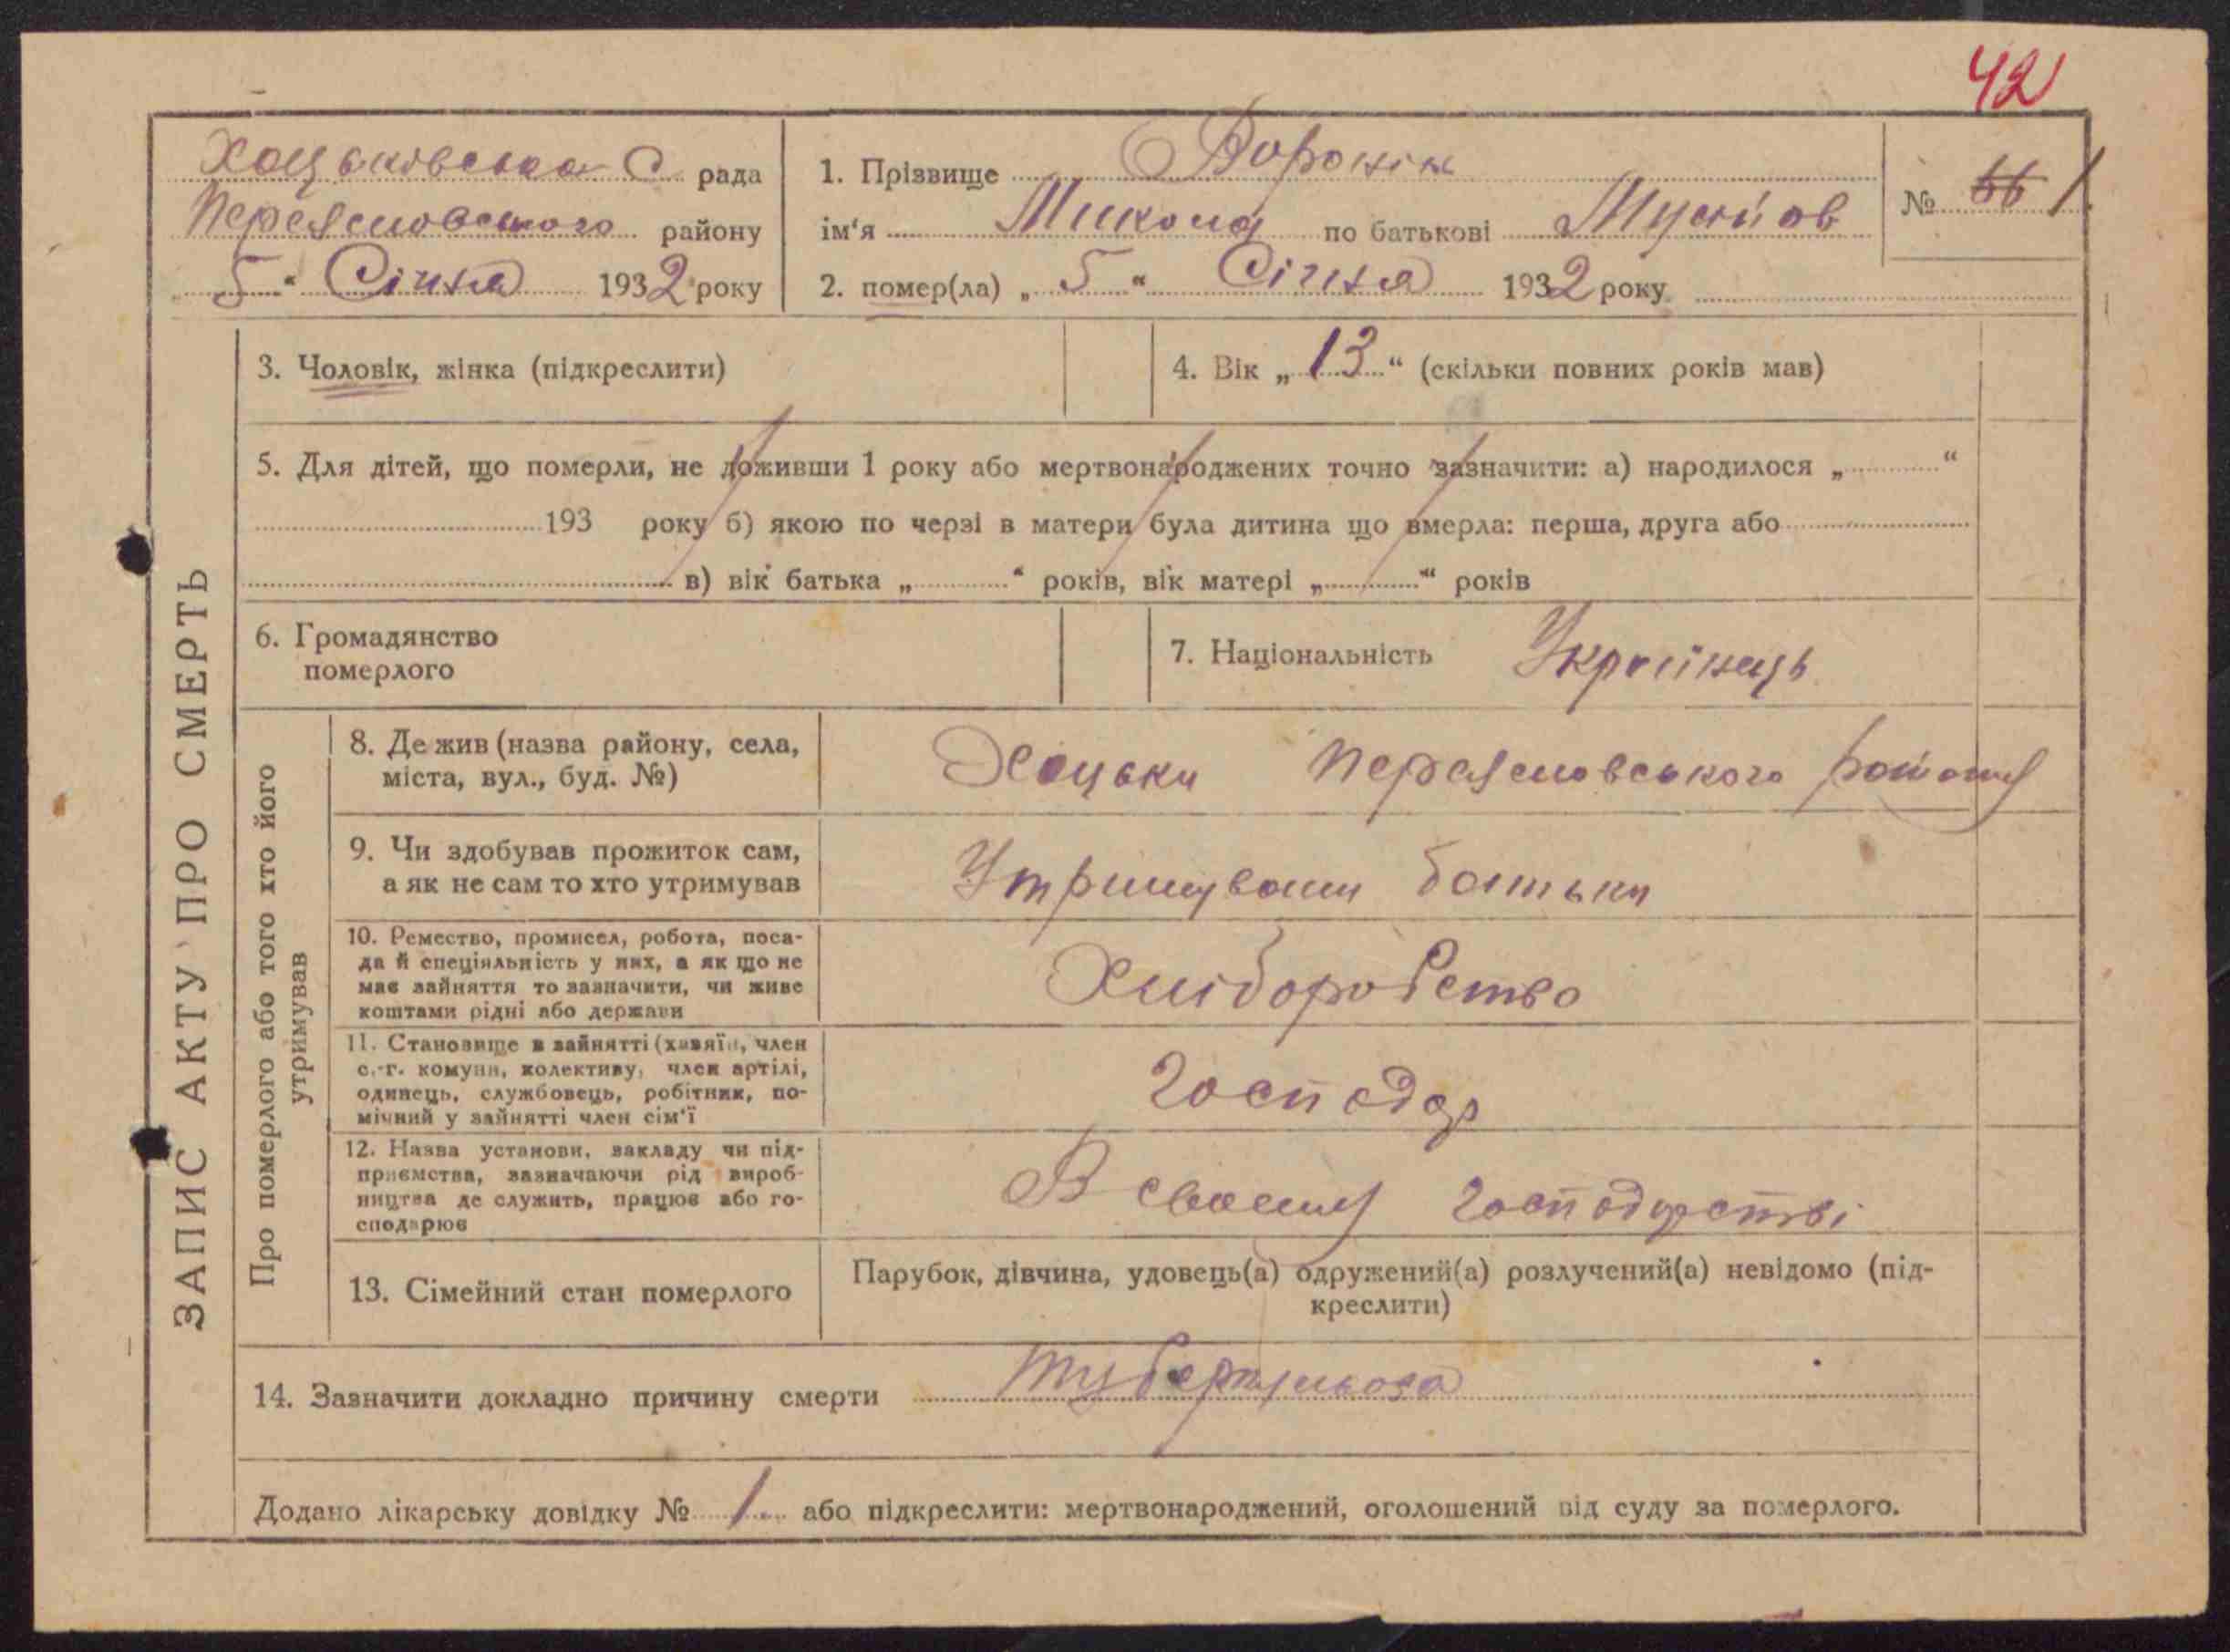 42
Хоцьківська С рада
Переяславського району
„ 5 “ Січня 1932 року
1. Прізвище Воронін
ім‘я Микола по батькові Мусійов
2. помер(ла) „ 5 “ Січня 1932 року
№ 66 1
ЗАПИС АКТУ ПРО СМЕРТЬ
3. Чоловік, жінка (підкреслити)
4. Вік „ 13 “ (скільки повних років мав)
5. Для дітей, що померли, не доживши 1 року або мертвонароджених точно зазначити: а) народилося „ “
193 року б) якою по черзі в матери була дитина що вмерла: перша, друга або
в) вік батька „ “ років, вік матері „ “ років
6. Громадянство
померлого
7. Національність Українець
Про померлого або того хто його
утримував
8. Де жив (назва району, села,
міста, вул., буд. №)
Хоцьки Переяславського району
9. Чи здобував прожиток сам,
а як не сам то хто утримував
Утримували батьки
10. Ремество, промисел, робота, поса-
да й спеціяльність у них, а як що не
має зайняття то зазначити, чи живе
коштами рідні або держави
Хліборобство
11. Становище в зайнятті (хазяїн, член
с.-г. комуни, колективу, член артілі,
одинець, службовець, робітник, по-
мічний у зайнятті член сім‘ї
Господар
12. Назва установи, закладу чи під-
приємства, зазначаючи рід вироб-
ництва де служить, працює або го-
сподарює
В своєму господарстві
13. Сімейний стан померлого
Парубок, дівчина, удовець(а) одружений(а) розлучений(а) невідомо (під-
креслити)
14. Зазначити докладно причину смерти Туберкульоза
Додано лікарську довідку № 1 або підкреслити: мертвонароджений, оголошений від суду за померлого.